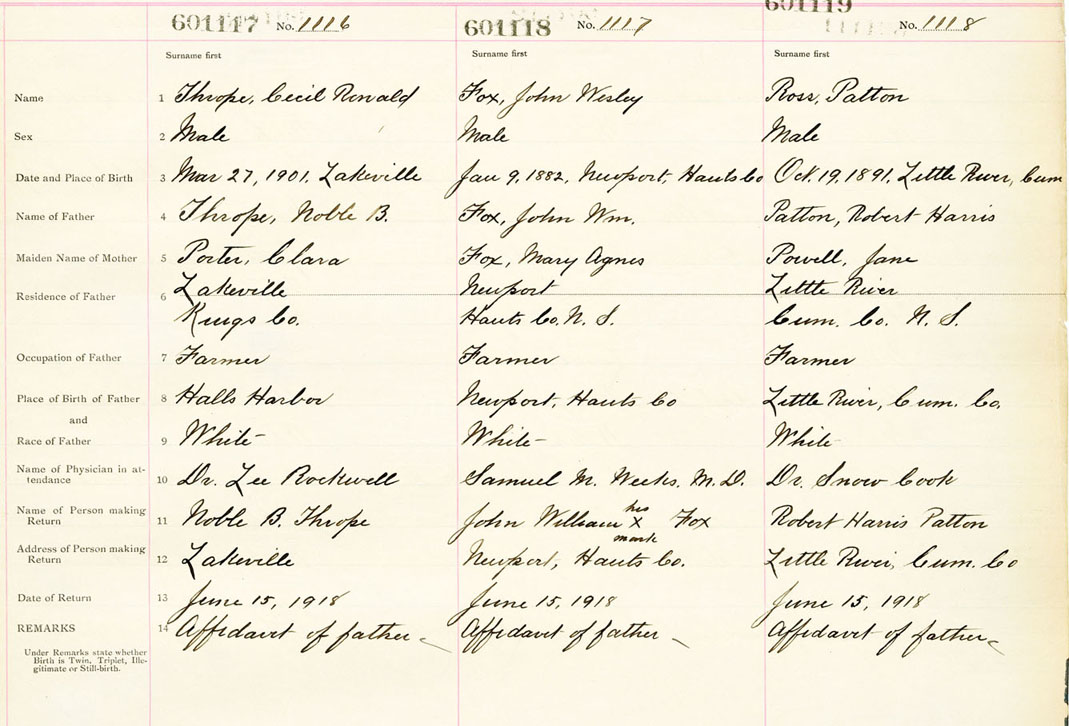 601117 No. 1116 601118 No. 1117 601119 No. 1118
Surname first Surname first Surname first
Name 1 Thrope, Cecil Ronald Fox, John Wesley Ross, Patton
Sex 2 Male Male Male
Date and Place of Birth 3 Mar 27, 1901, Lakeville Jan 9, 1882, Newport, Hants Co Oct. 19, 1891, Little River, Cum
Name of Father 4 Thrope, Noble B. Fox, John Wm. Patton, Robert Harris
Maiden Name of Mother 5 Porter, Clara Fox, Mary Agnes Powell, Jane
Residence of Father 6 Lakeville Newport Little River
Kings Co. Hants Co. N. S. Cum. Co. N. S.
Occupation of Father 7 Farmer Farmer Farmer
Place of Birth of Father 8 Halls Harbor Newport, Hants Co Little River, Cum. Co.
and
Race of Father 9 White White White
Name of Physician in at-
tendance 10 Dr. Lee Rockwell Samuel M. Weeks, M. D. Dr. Snow Cook
Name of Person making
Return 11 Noble B. Thrope John William his X mark Fox Robert Harris Patton
Address of Person making
Return 12 Lakeville Newport, Hants Co. Little River, Cum. Co
Date of Return 13 June 15, 1918 June 15, 1918 June 15, 1918
REMARKS 14 Affidavit of father Affidavit of father Affidavit of father
Under Remarks state whether
Birth is Twin, Triplet, Ille-
gitimate or Still-birth.